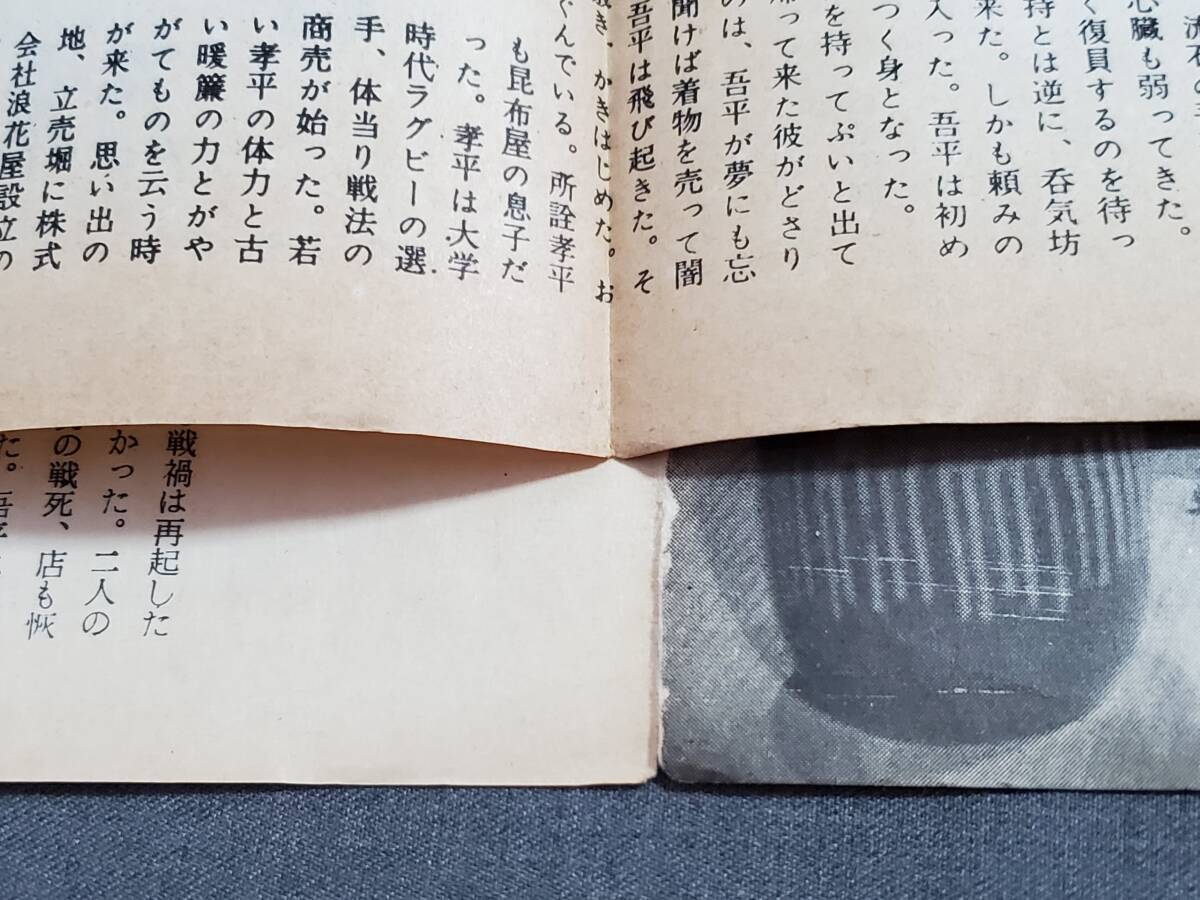 流石
心臓も弱ってきた。
く復員するのを待っ
持とは逆に、呑気坊
来た。しかも頼みの
入った。吾平は初め
つく身となった。
を持ってぷいと出て
帰って来た彼がどさり
のは、吾平が夢にも忘
聞けば着物を売って闇
吾平は飛び起きた。そ
敲き、かきはじめた。お
ぐんでいる。所詮孝平
も昆布屋の息子だ
った。孝平は大学
時代ラグビーの選
手、体当り戦法の
商売が始った。若
い孝平の体力と古
い暖簾の力とがや
がてものを云う時
が来た。思い出の
地、立売堀に株式
会社浪花屋設立の
戦禍は再起した
かった。二人の
の戦死、店も恢
た。吾平